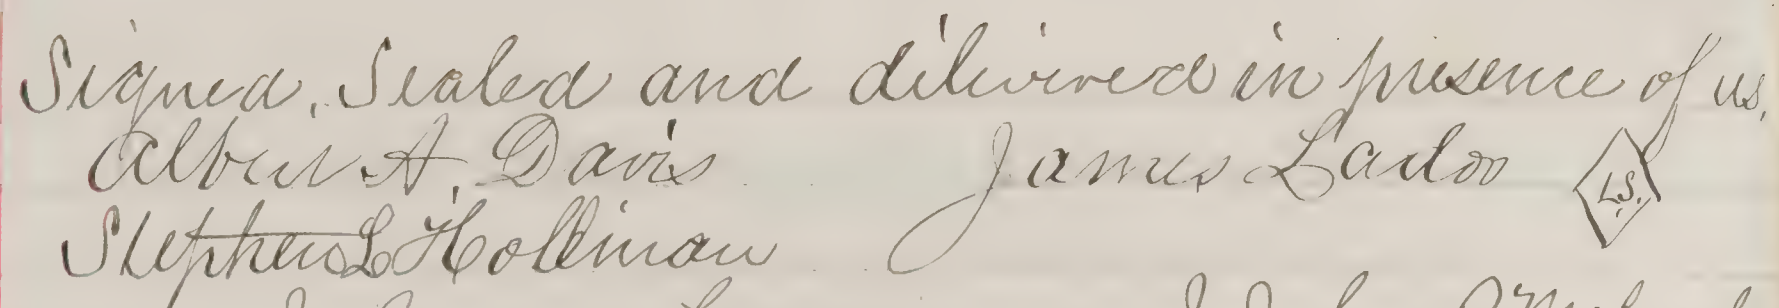 Signed, Sealed and delivered in presence of us,
Albert A. Davis James Ladoo L.S.
Stephen L Hollman